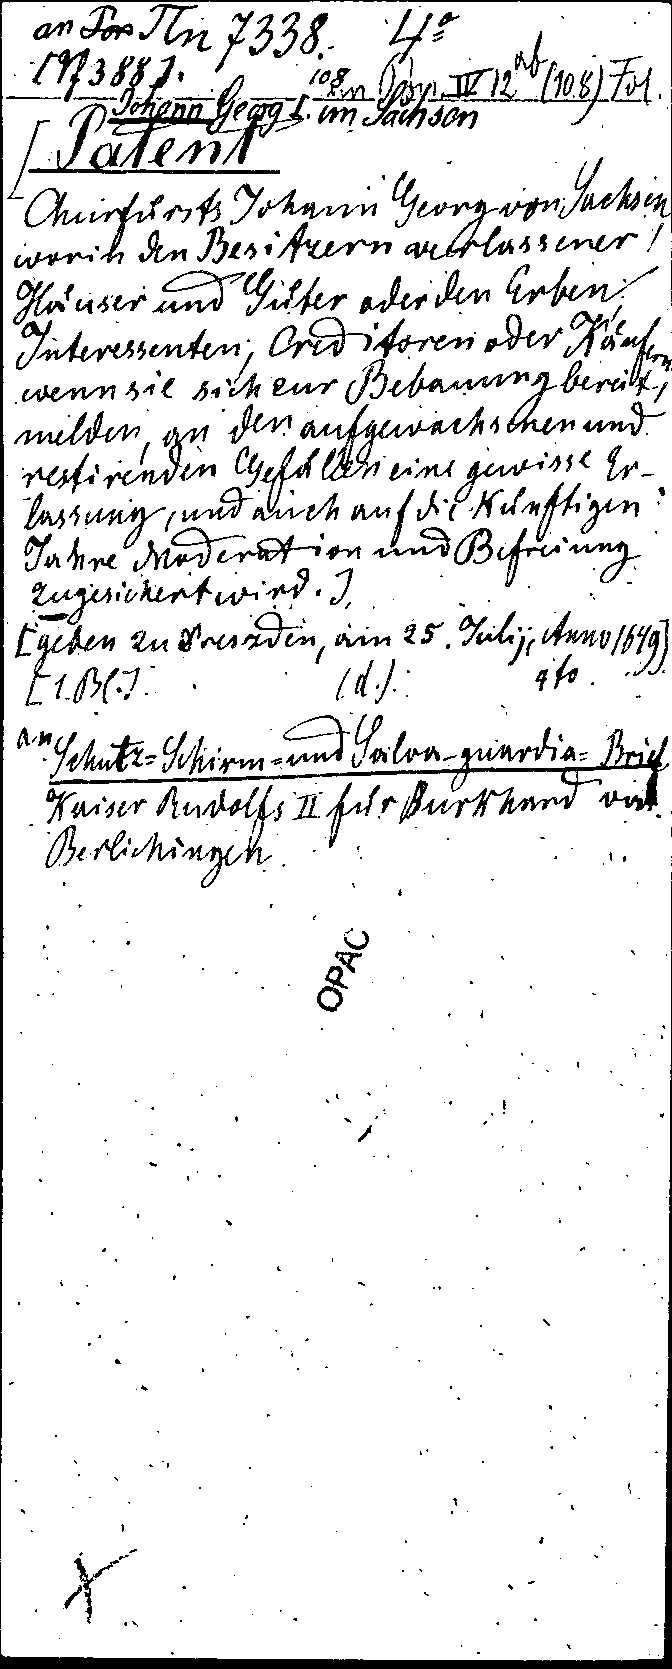 an Πn 7338. 4°
[973887].
108 an IV 12 ab (108) Fol.
Johann Georg I. in Sachsen
[Patent
Churfürsts Johann Georg von Sachsen,
worin den Besitzern verlassener
Häuser und Güter oder den Erben,
Interessenten, Creditoren oder Käufern
wenn sie sich zur Bebauung bereit,
melden, an den aufgewachsenen und
restirenden Gefällen eine gewisse Er-
lassung, und auch auf die künftigen
Jahre Moderation und Befreiung
zugesichert wird.]
[geben zu Dreszden, am 25. Julij, Anno 1649]
[1. Bl.] (d.). 4to.
an Schutz=Schirm=und Salva-guardia=Brief
Kaiser Rudolfs II für Burkhard von
Berlichingen.
OPAC